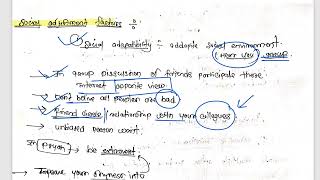 Social adjustment factors :-
Social adaptability :- addopte social environment.
In group disscussion of friends participate there
Interest opposite view
Don't belive all person are bad
Friend circle / relationship with your collegues
unbiased person want.
In psychy → be extrovert
Improve your shyness into